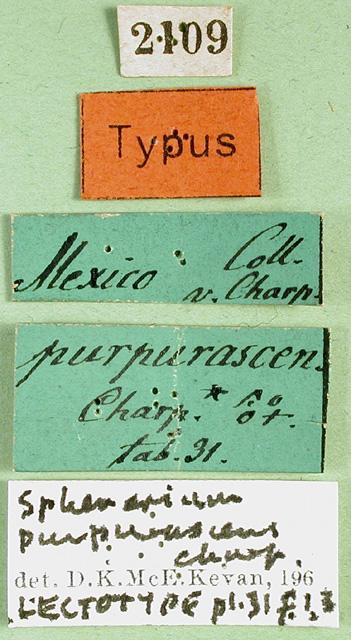 2109
Typus
Mexico Coll.
v. Charp.
purpurascens
Charp. *
tab. 31.
Sphenarium
purpurascens
charp.
det. D.K.McE.Kevan, 196
LECTOTYPE pl.31 f.1,3